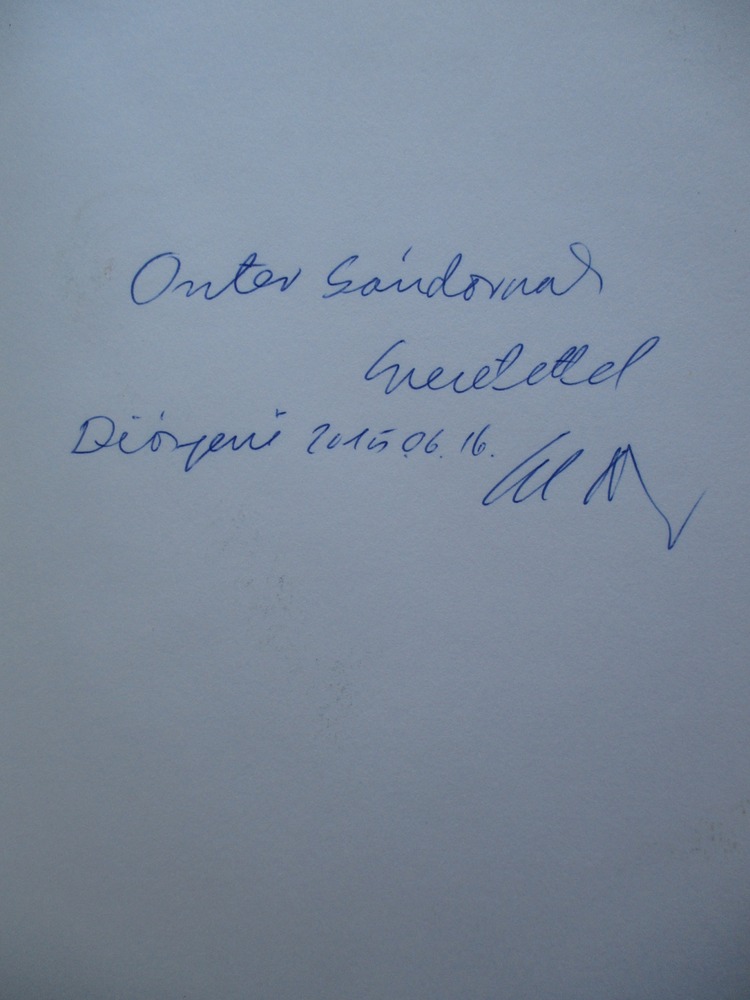 Onter Sándornak
Szeretettel
Diósjenő 2015.06.16.